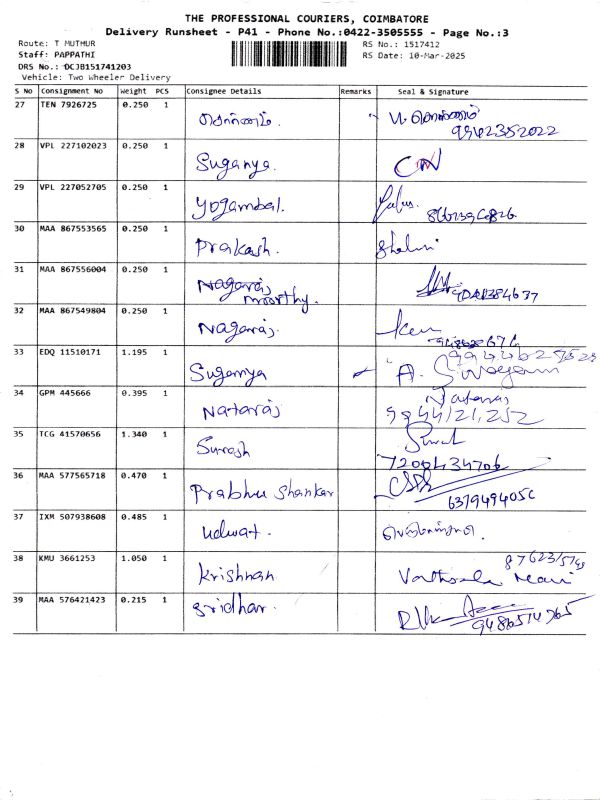 THE PROFESSIONAL COURIERS, COIMBATORE
Delivery Runsheet - P41 - Phone No.:0422-3505555 - Page No.:3
Route: T MUTHUR
RS No.: 1517412
Staff: PAPPATHI
RS Date: 10-Mar-2025
DRS No.: DCJB151741203
Vehicle: Two Wheeler Delivery
S No Consignment No Weight PCS Consignee Details Remarks Seal & Signature
27 TEN 7926725 0.250 1
9942352022
28 VPL 227102023 0.250 1 Suganya.
29 VPL 227052705 0.250 1 Yogambal.
30 MAA 867553565 0.250 1 Prakash. Shalini
31 MAA 867556004 0.250 1 Nagaraj
moorthy.
32 MAA 867549804 0.250 1 Nagaraj.
33 EDQ 11510171 1.195 1 Suganya A. Sivagami
34 GPM 445666 0.395 1 Nataraj Nataraj
9944121,252
35 TCG 41570656 1.340 1 Suresh
7200434706
36 MAA 577565718 0.470 1 Prabhu Shankar
37 IXM 507938608 0.485 1 Udwat.
38 KMU 3661253 1.050 1 Krishnan
39 MAA 576421423 0.215 1 Sridhar.
9486514765